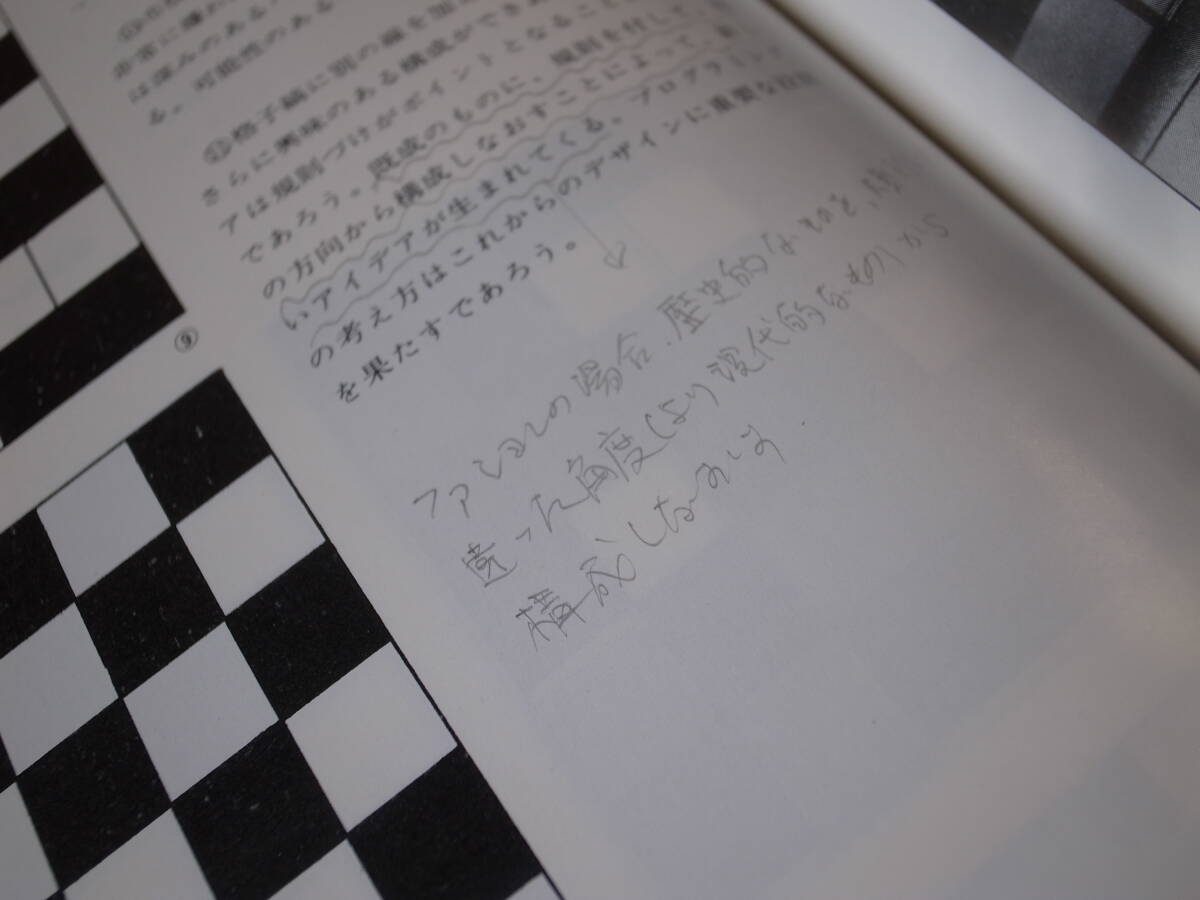 非常に嫌わ
は深みのある
る。可能性のある
格子縞に別の縞を加え
さらに興味のある構成ができあ
アは規則づけがポイントとなること
であろう。既成のものに、規則を付して、
の方向から構成しなおすことによって、
いアイデアが生まれてくる。プログラミング
の考え方はこれからのデザインに重要な
を果たすであろう。
⑨
ファションの場合、歴史的なものを、
違った角度(より現代的なもの)から
構成しなおす.